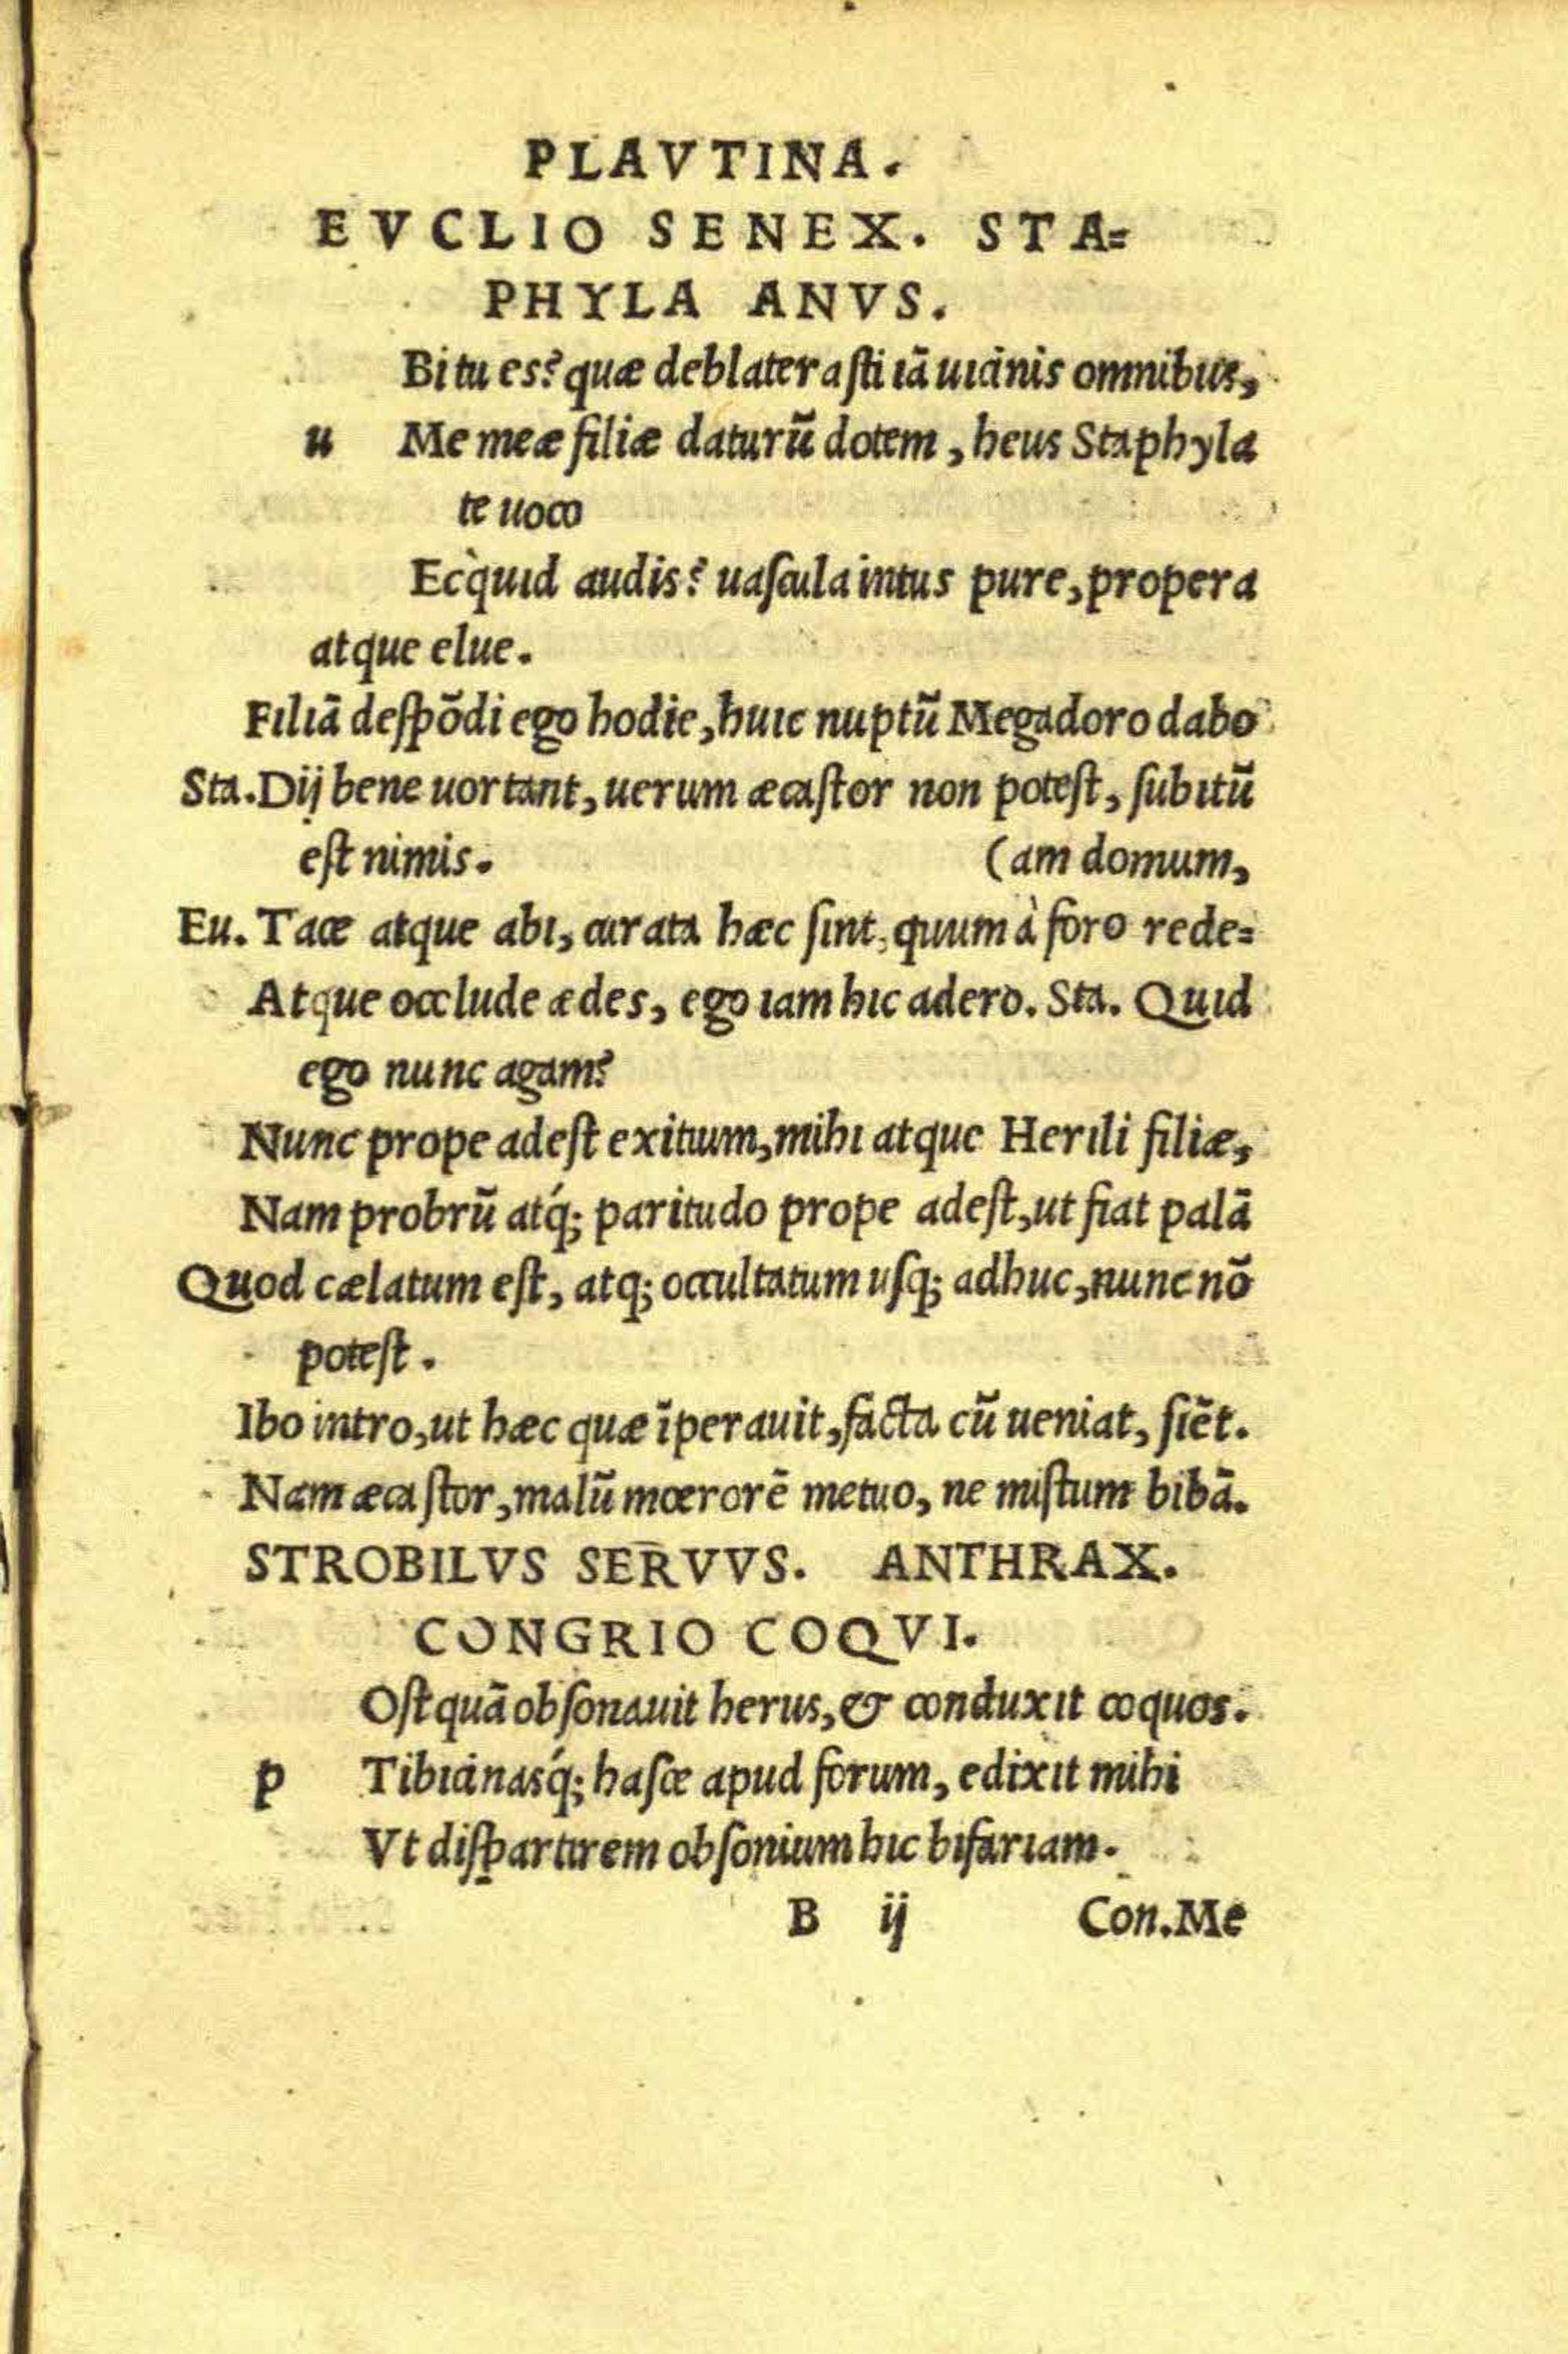 PLAVTINA.
EVCLIO SENEX. STA=
PHYLA ANVS.
Bi tu es? quæ deblaterasti iā uicinis omnibus,
u Me meæ filiæ daturū dotem, heus Staphyla
te uoco
Ecq̀uid audis? uascula intus pure, propera
atque elue.
Filiā despōdi ego hodie, huic nuptū Megadoro dabo
Sta. Dij bene uortant, uerum æcastor non potest, subitū
est nimis. (am domum,
Eu. Tace atque abi, curata hæc sint, quum à foro rede=
Atque occlude ædes, ego iam hic adero. Sta. Quid
ego nunc agam?
Nunc prope adest exitium, mihi atque Herili filiæ,
Nam probrū atq́; paritudo prope adest, ut fiat palā
Quod cælatum est, atq; occultatum usq; adhuc, nunc nō
potest.
Ibo intro, ut hæc quæ īperauit, facta cū ueniat, siēt.
Nam æcastor, malū mœrorē metuo, ne mistum bibā.
STROBILVS SERVVS. ANTHRAX.
CONGRIO COQVI.
Ostquā obsonauit herus, & conduxit coquos.
p Tibicinasq́; hasce apud forum, edixit mihi
Vt dispartirem obsonium hic bifariam.
B ij Con. Me